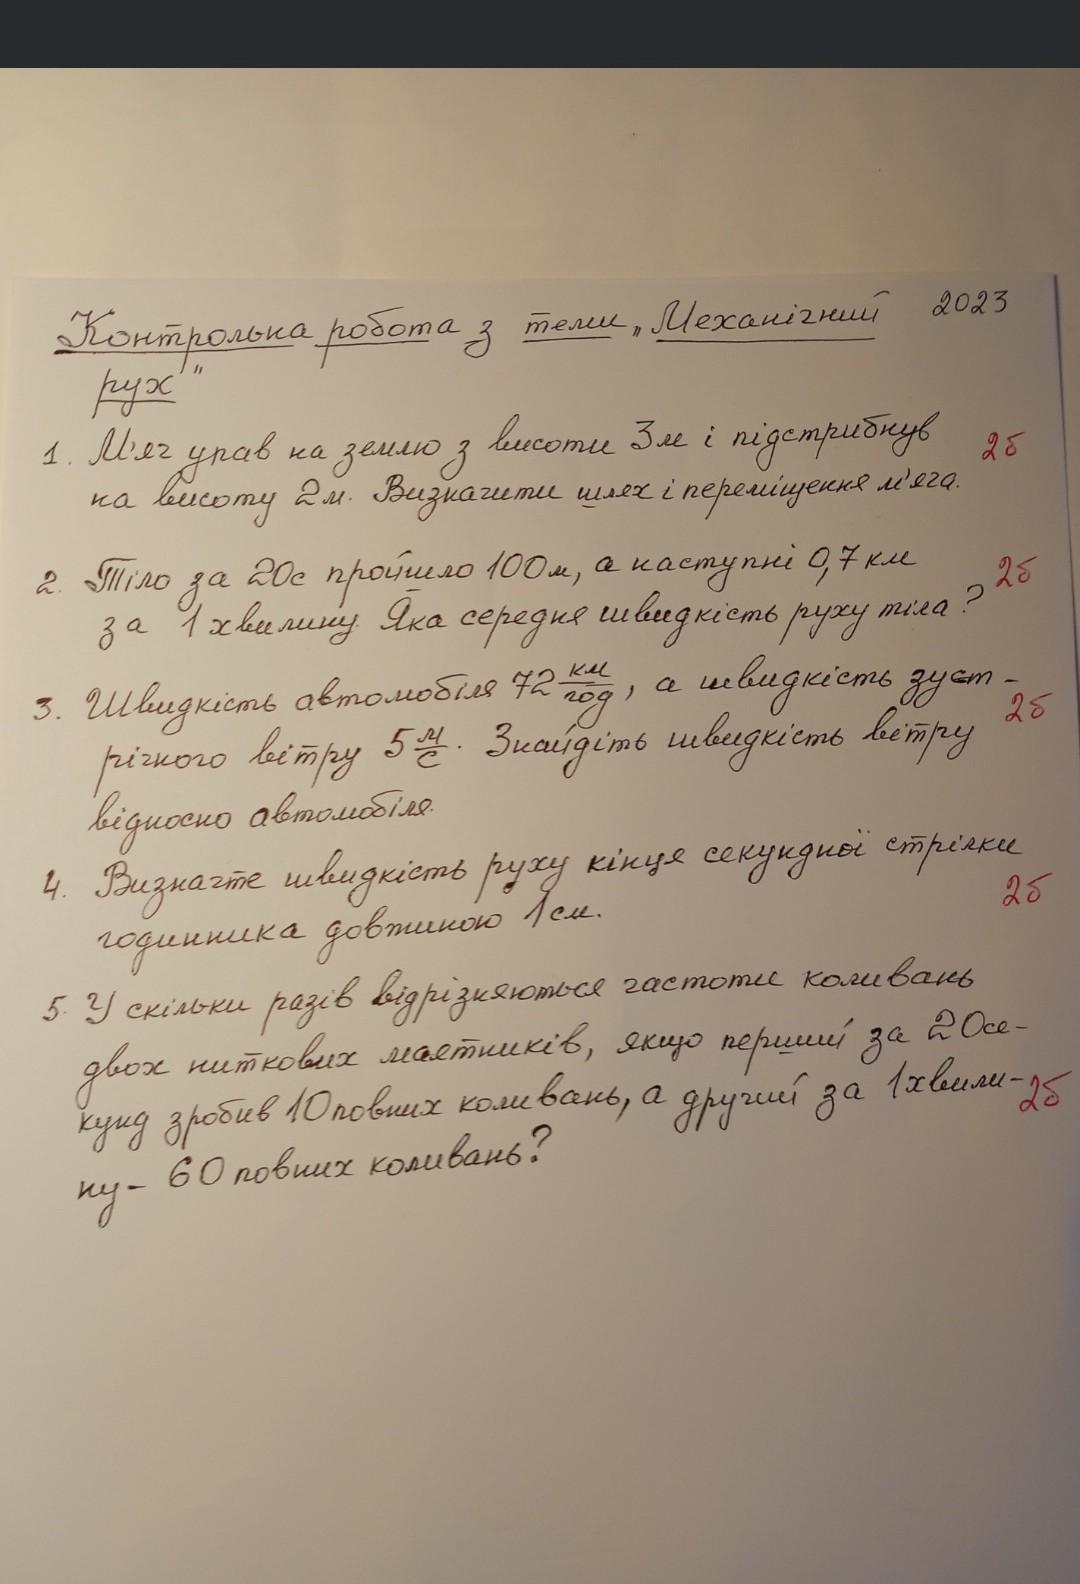 Контрольна робота з теми „Механічний 2023
рух"
1. М'яч упав на землю з висоти 3м і підстрибнув 2б
на висоту 2м. Визначити шлях і переміщення м'яча.
2. Тіло за 20с пройшло 100м, а наступні 0,7 км 2б
за 1 хвилину. Яка середня швидкість руху тіла?
3. Швидкість автомобіля 72 км/год, а швидкість зуст- 2б
річного вітру 5 м/с. Знайдіть швидкість вітру
відносно автомобіля.
4. Визначте швидкість руху кінця секундної стрілки 2б
годинника довжиною 1см.
5. У скільки разів відрізняються частоти коливань
двох ниткових маятників, якщо перший за 20се-
кунд зробив 10 повних коливань, а другий за 1хвили- 2б
ну- 60 повних коливань?